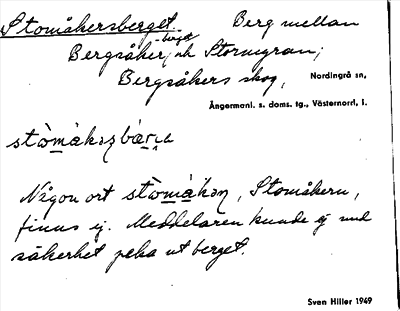 Stomåkersberget. Berg mellan
Bergsåker,-berget och Storugran;
Bergsåkers skog, Nordingrå sn,
Ångermanl. s. doms. tg., Västernorrl. l.
Någon ort , Stomåkern,
finns ej. Meddelaren kunde ej med
säkerhet peka ut berget.
Sven Hiller 1949